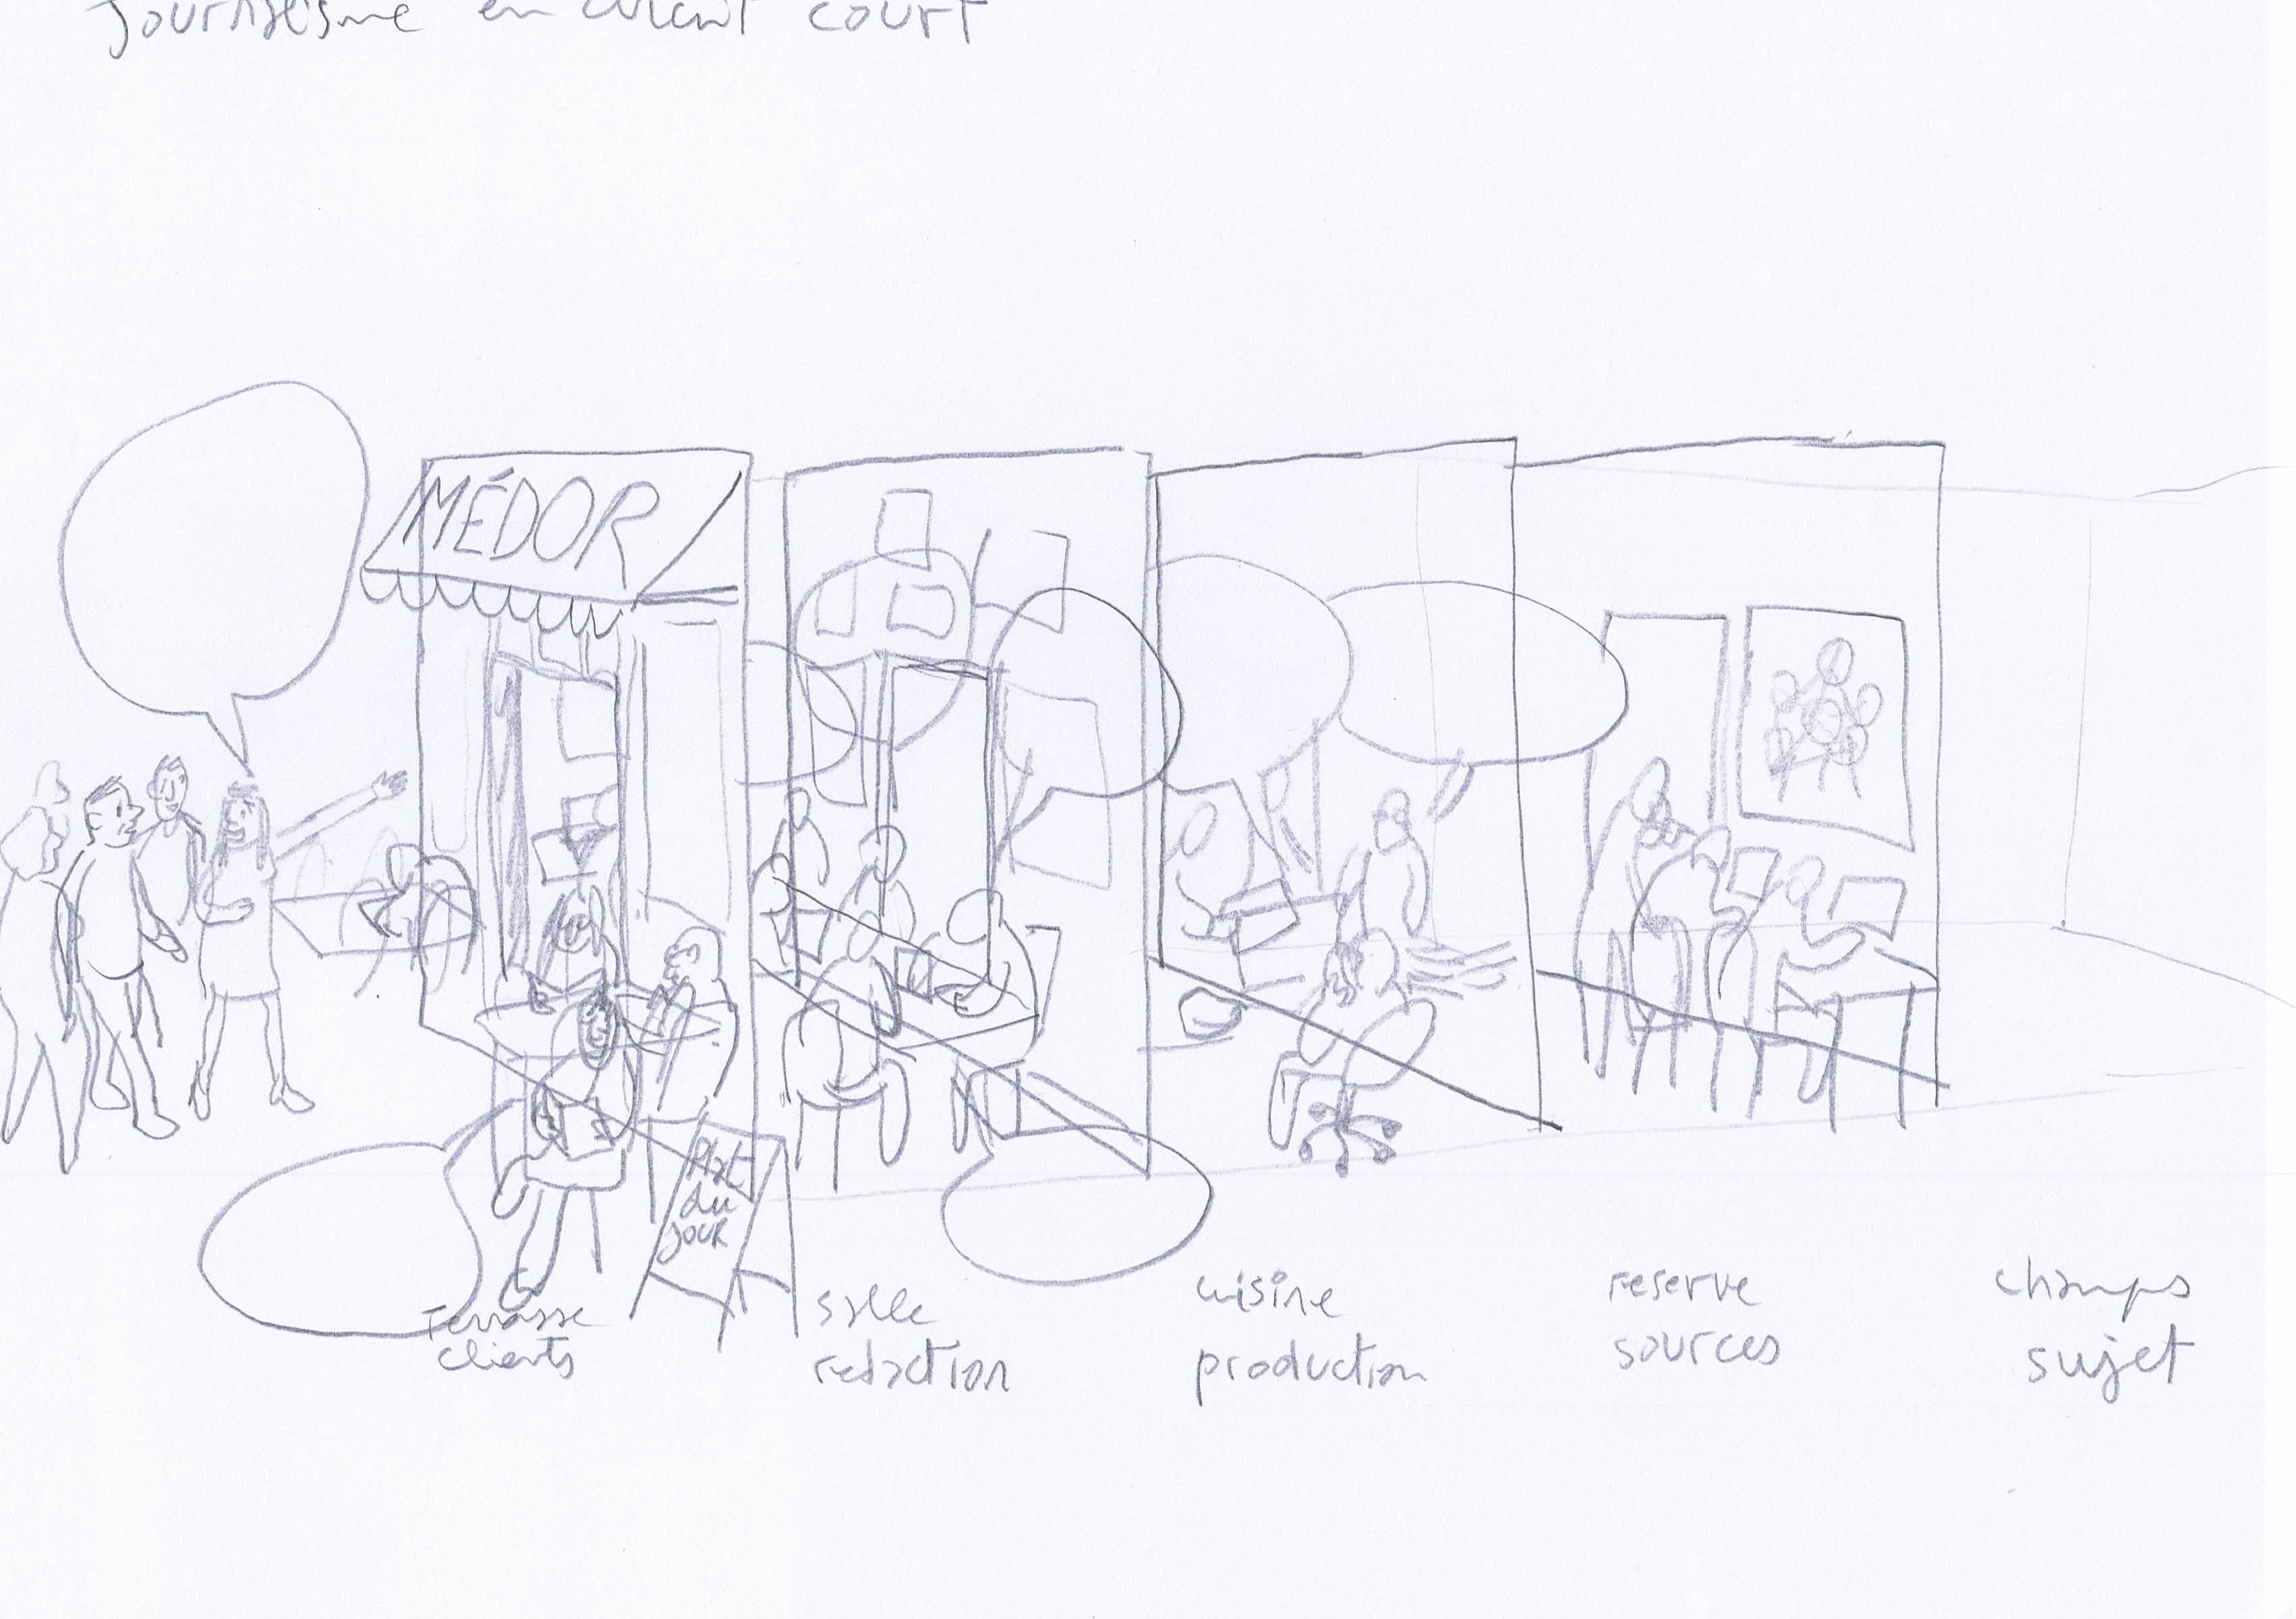 journalisme en circuit court
MÉDOR
Plat
du
jour
Terrasse
clients
salle
redaction
cuisine
production
reserve
sources
champs
sujet